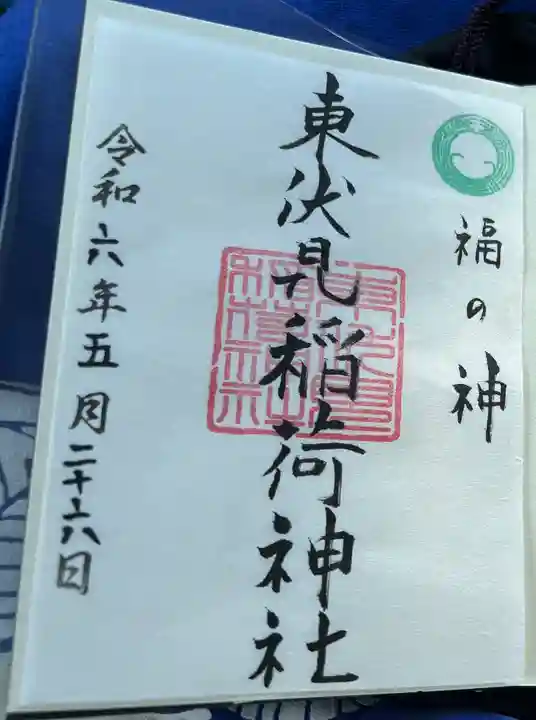 福の神
東伏見稲荷神社
令和六年五月二十六日